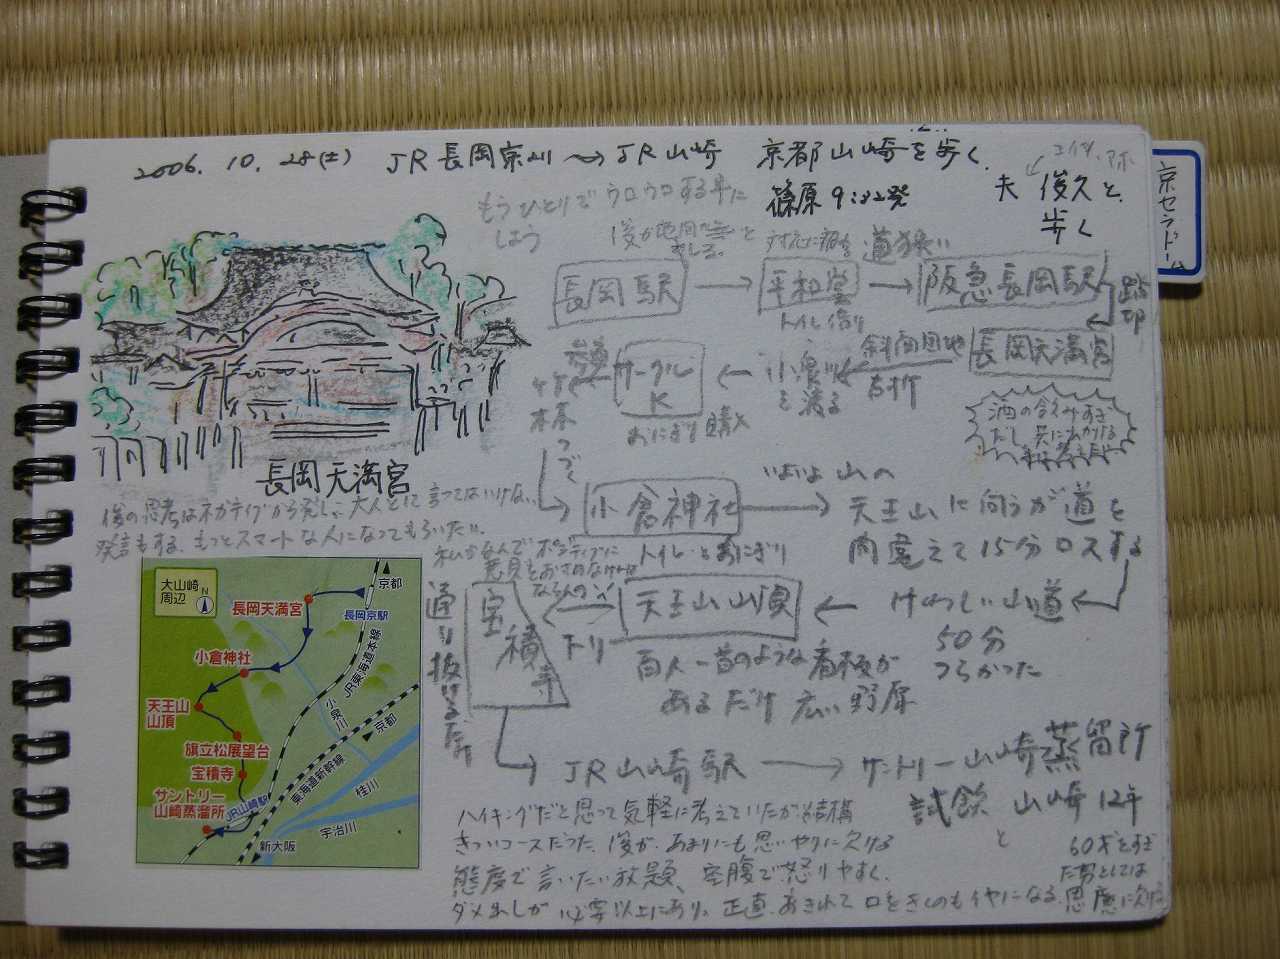 2006. 10. 28(土) JR長岡京駅 〜 JR山崎 京都山崎を歩く
夫 俊久と
歩く
篠原 9:32発
もうひとりでウロウロする事に
しよう
京セラドーム
道狭い
長岡駅 → 平和堂 → 阪急長岡駅
トイレ借り
踏切
長岡天満宮
斜面団地
右折
小泉川
を渡る
サークル
K
おにぎり購入
酒の飲みすぎ
長岡天満宮
俊の思考はネガティブから発し、大人として言ってはいけない
発言もする。もっとスマートな人になってもらいたい。
小倉神社 → いよいよ山の
トイレとおにぎり
天王山に向うが道を
間違えて15分ロスする
けわしい山道
50分
つらかった
天王山山頂
百人一首のような看板が
あるだけ 広い野原
宝積寺
通り抜けるだけ
JR山崎駅 → サントリー山崎蒸留所
試飲 山崎12年
と
ハイキングだと思って気軽に考えていたが結構
きついコースだった。俊が、あまりにも思いやりに欠ける
態度で言いたい放題、空腹で怒りやすく、
ダメ出しが必要以上にあり、正直、あきれて口をきくのもイヤになる。
60才をすぎ
た男としては
思慮に欠ける
大山崎
周辺
N
京都
長岡天満宮
長岡京駅
小倉神社
JR東海道本線
天王山
山頂
小泉川
旗立松展望台
京都
宝積寺
東海道新幹線
サントリー
山崎蒸溜所
JR山崎駅
桂川
宇治川
新大阪